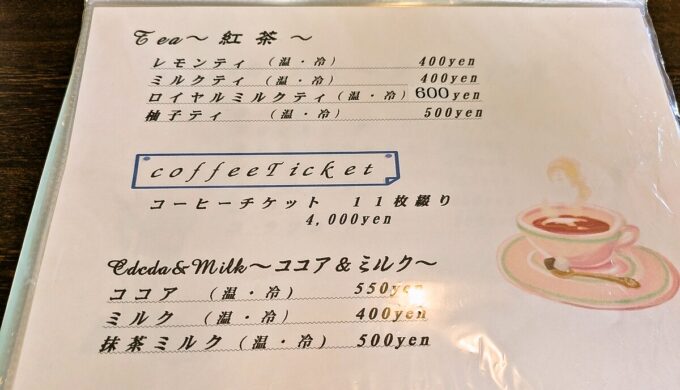 Tea～ 紅 茶 ～
レモンティ （温・冷） 400yen
ミルクティ （温・冷） 400yen
ロイヤルミルクティ（温・冷） 600yen
柚子ティ （温・冷） 500yen
coffeeTicket
コーヒーチケット １１枚綴り
4,000yen
Cdcda&Milk～ココア＆ミルク～
ココア （温・冷） 550yen
ミルク （温・冷） 400yen
抹茶ミルク（温・冷） 500yen